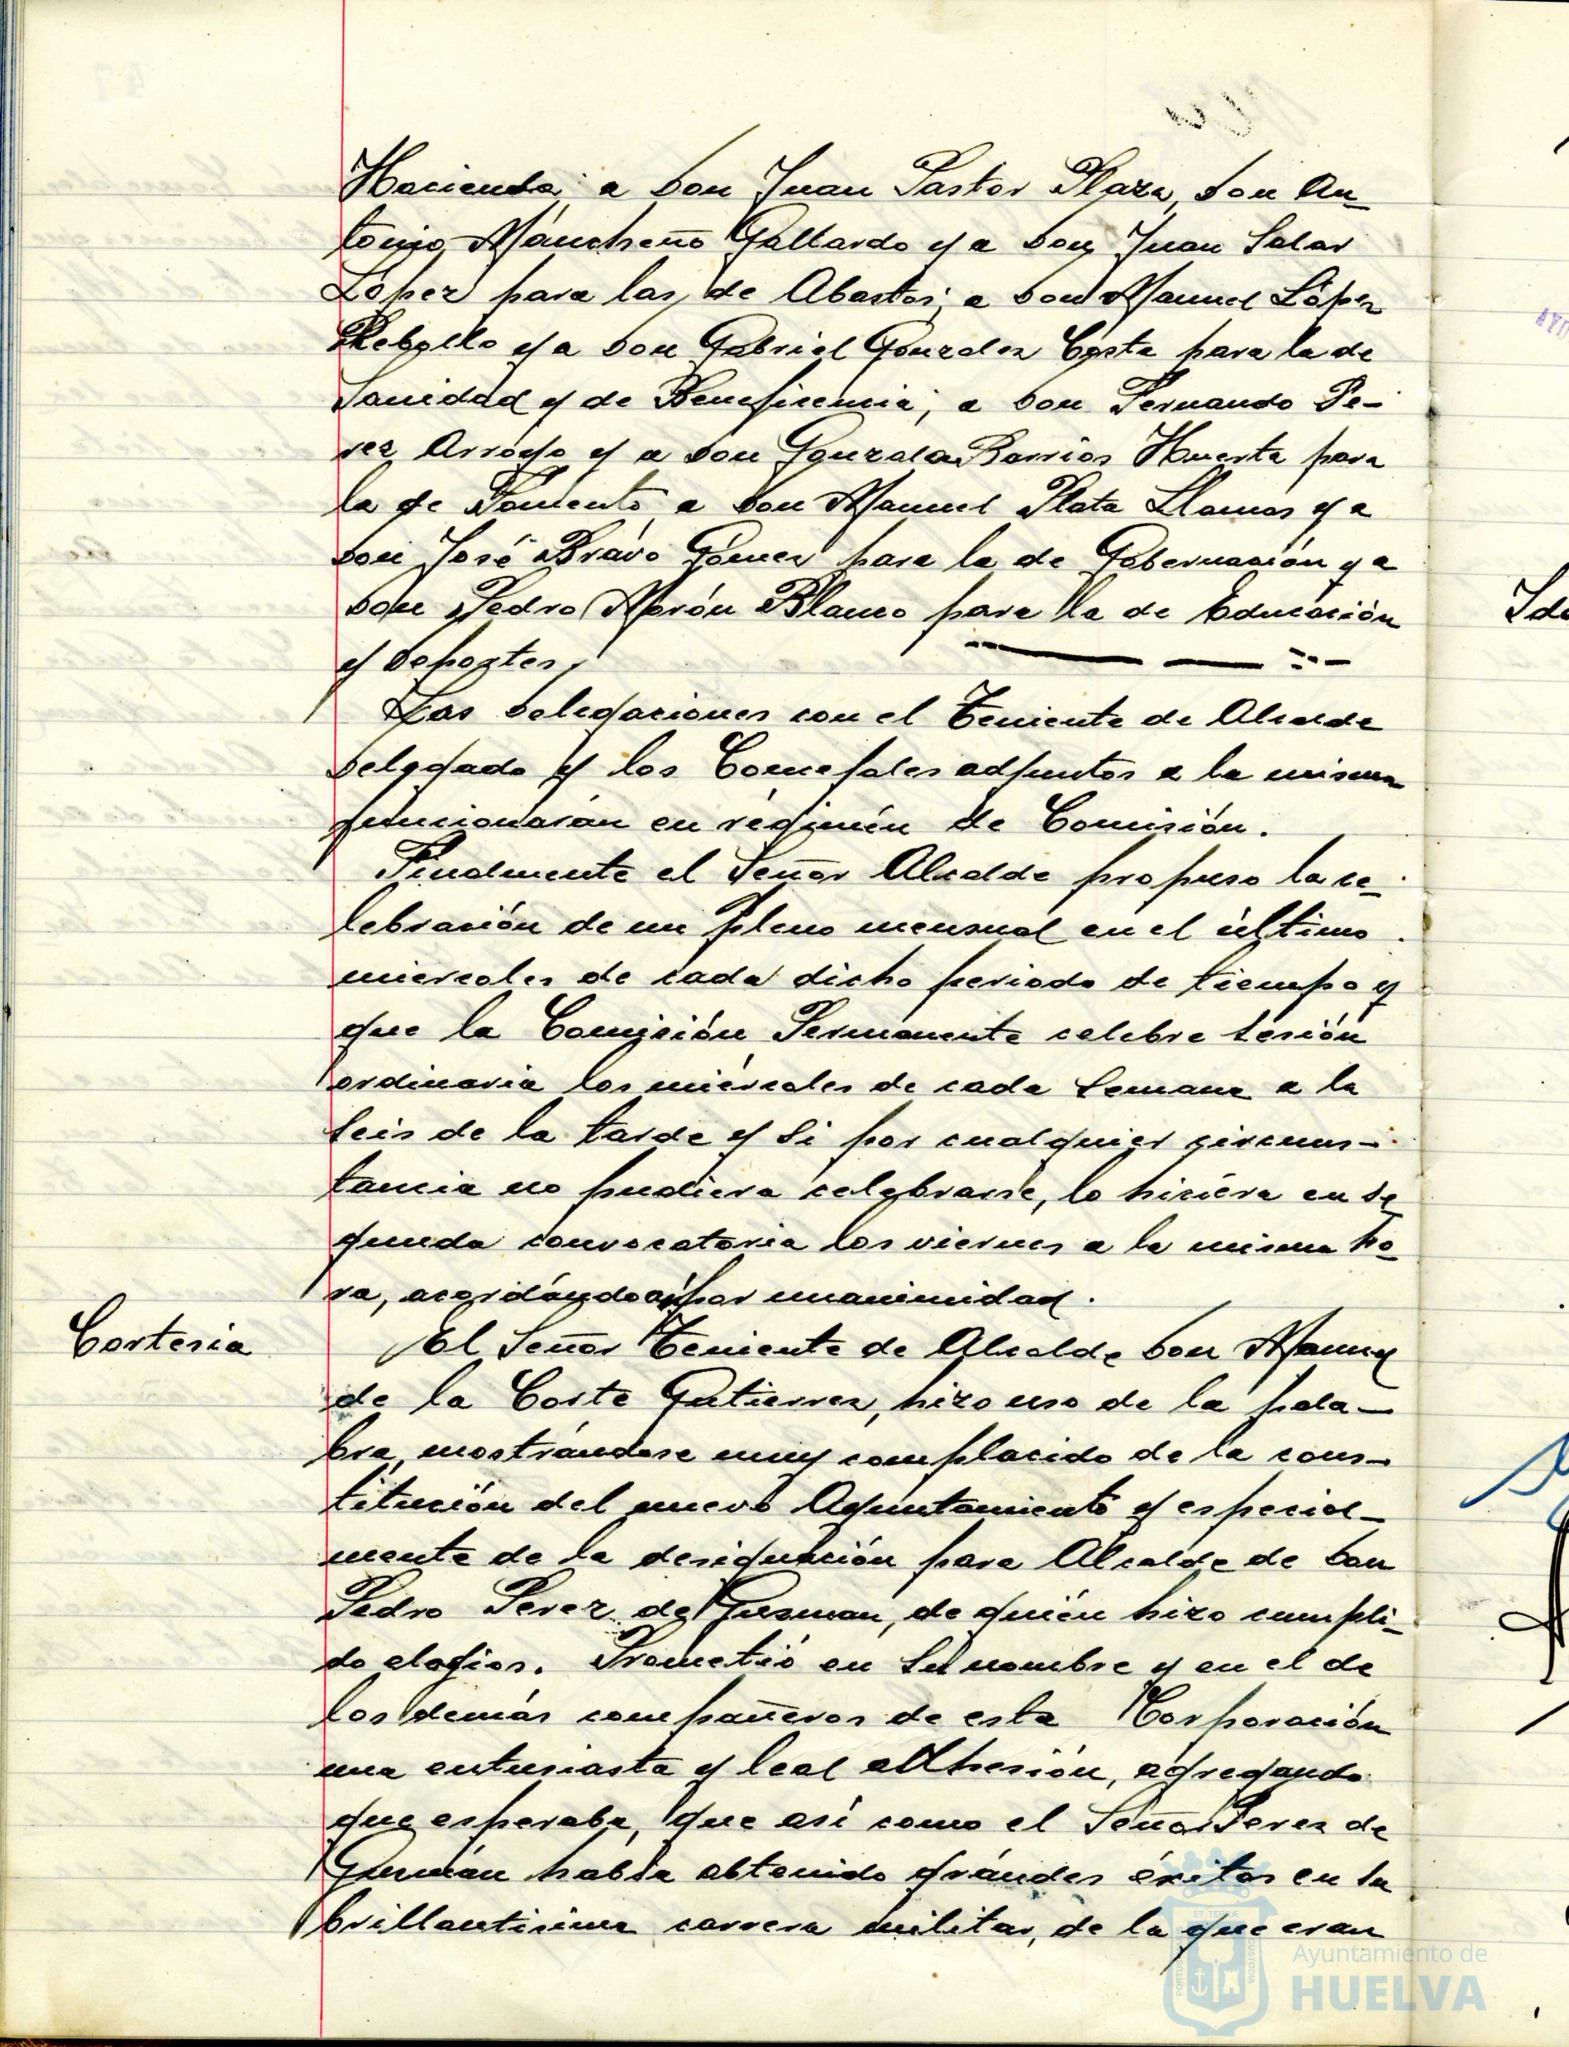 Hacienda; a Don Juan Pastor Plaza, Don An-
tonio Mancheño Gallardo y a Don Juan Salar
López para las de Abastos; a Don Manuel López
Rebollo y a Don Gabriel Gonzalez Costa para la de
Sanidad y de Beneficencia; a Don Fernando Pe-
rez Arroyo y a Don Gonzalo Barrios Huerta para
la de Fomento, a Don Manuel Plata Llamas y a
Don José Bravo Gómez para la de Gobernación y a
Don Pedro Morón Blanco para la de Educación
y Deportes,
Las Delegaciones con el Teniente de Alcalde
Delegado y los Concejales adjuntos a la misma
funcionarán en régimén de Comisión.
Finalmente el Señor Alcalde propuso la ce-
lebración de un pleno mensual en el último
miercoles de cada dicho periodo de tiempo y
que la Comisión Permanente celebre sesión
ordinaria los miércoles de cada semana a la
seis de la tarde y si por cualquier circuns-
tancia no pudiera celebrarse, lo hiciéra en se-
gunda convocatoria los viernes a la misma ho-
ra, acordándo así por unanimidad.
Cortesia
El Señor Teniente de Alcalde Don Manuel
de la Corte Gutierrez, hizo uso de la pala-
bra, mostrándose muy complacido de la cons-
titución del nuevo Ayuntamiento y especial-
mente de la designación para Alcalde de Don
Pedro Perez de Guzman, de quién hizo cumpli-
do elogios. Prometió en su nombre y en el de
los demás compañeros de esta Corporación
una entusiasta y leal adhesión, agregando
que esperaba, que así como el Señor Perez de
Guzmán habia obtenido grándes éxitos en su
brillantisima carrera militar, de la que eran
Ayuntamiento de
HUELVA